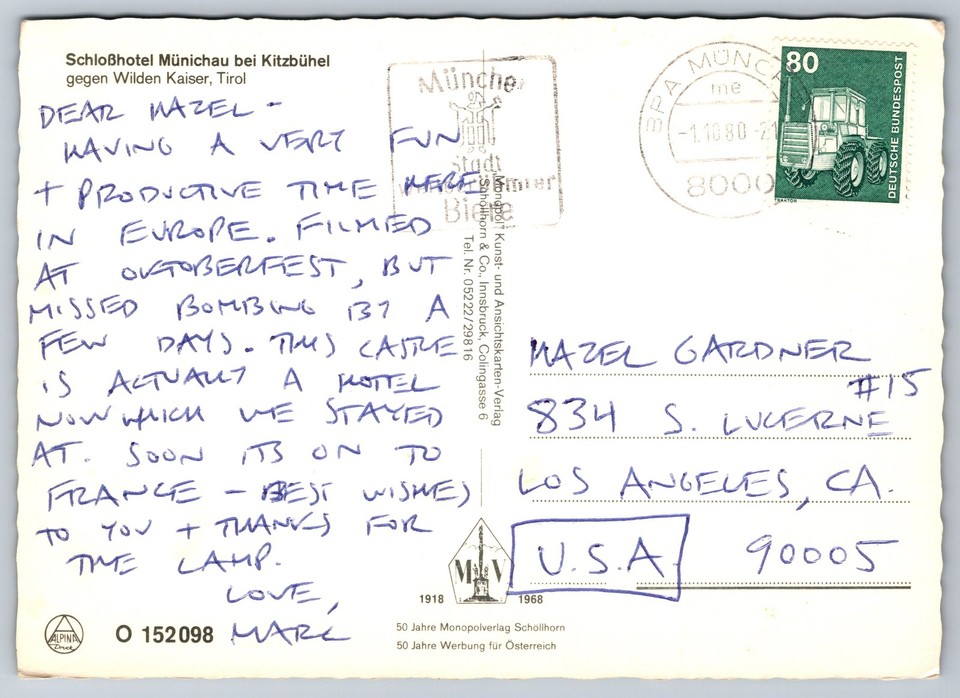 Schloßhotel Münichau bei Kitzbühel
gegen Wilden Kaiser, Tirol
DEAR HAZEL -
HAVING A VERY FUN
+ PRODUCTIVE TIME HERE
IN EUROPE. FILMED
AT OKTOBERFEST, BUT
MISSED BOMBING BY A
FEW DAYS. THIS CASTLE
IS ACTUALLY A HOTEL
NOW WHICH WE STAYED
AT. SOON ITS ON TO
FRANCE - BEST WISHES
TO YOU + THANKS FOR
THE LAMP.
LOVE,
MARC
ALPINA
Druck
O 152098
München
Stadt
Biere
BPA MÜNCH
me
-1.10.80-21
8000
80
DEUTSCHE BUNDESPOST
TRAKTOR
"Monopol" Kunst- und Ansichtskarten-Verlag
Schöllhorn & Co., Innsbruck, Colingasse 6
Tel. Nr. 05222/29816
HAZEL GARDNER
#15
834 S. LUCERNE
LOS ANGELES, CA.
U.S.A. 90005
MV
1918 1968
50 Jahre Monopolverlag Schöllhorn
50 Jahre Werbung für Österreich